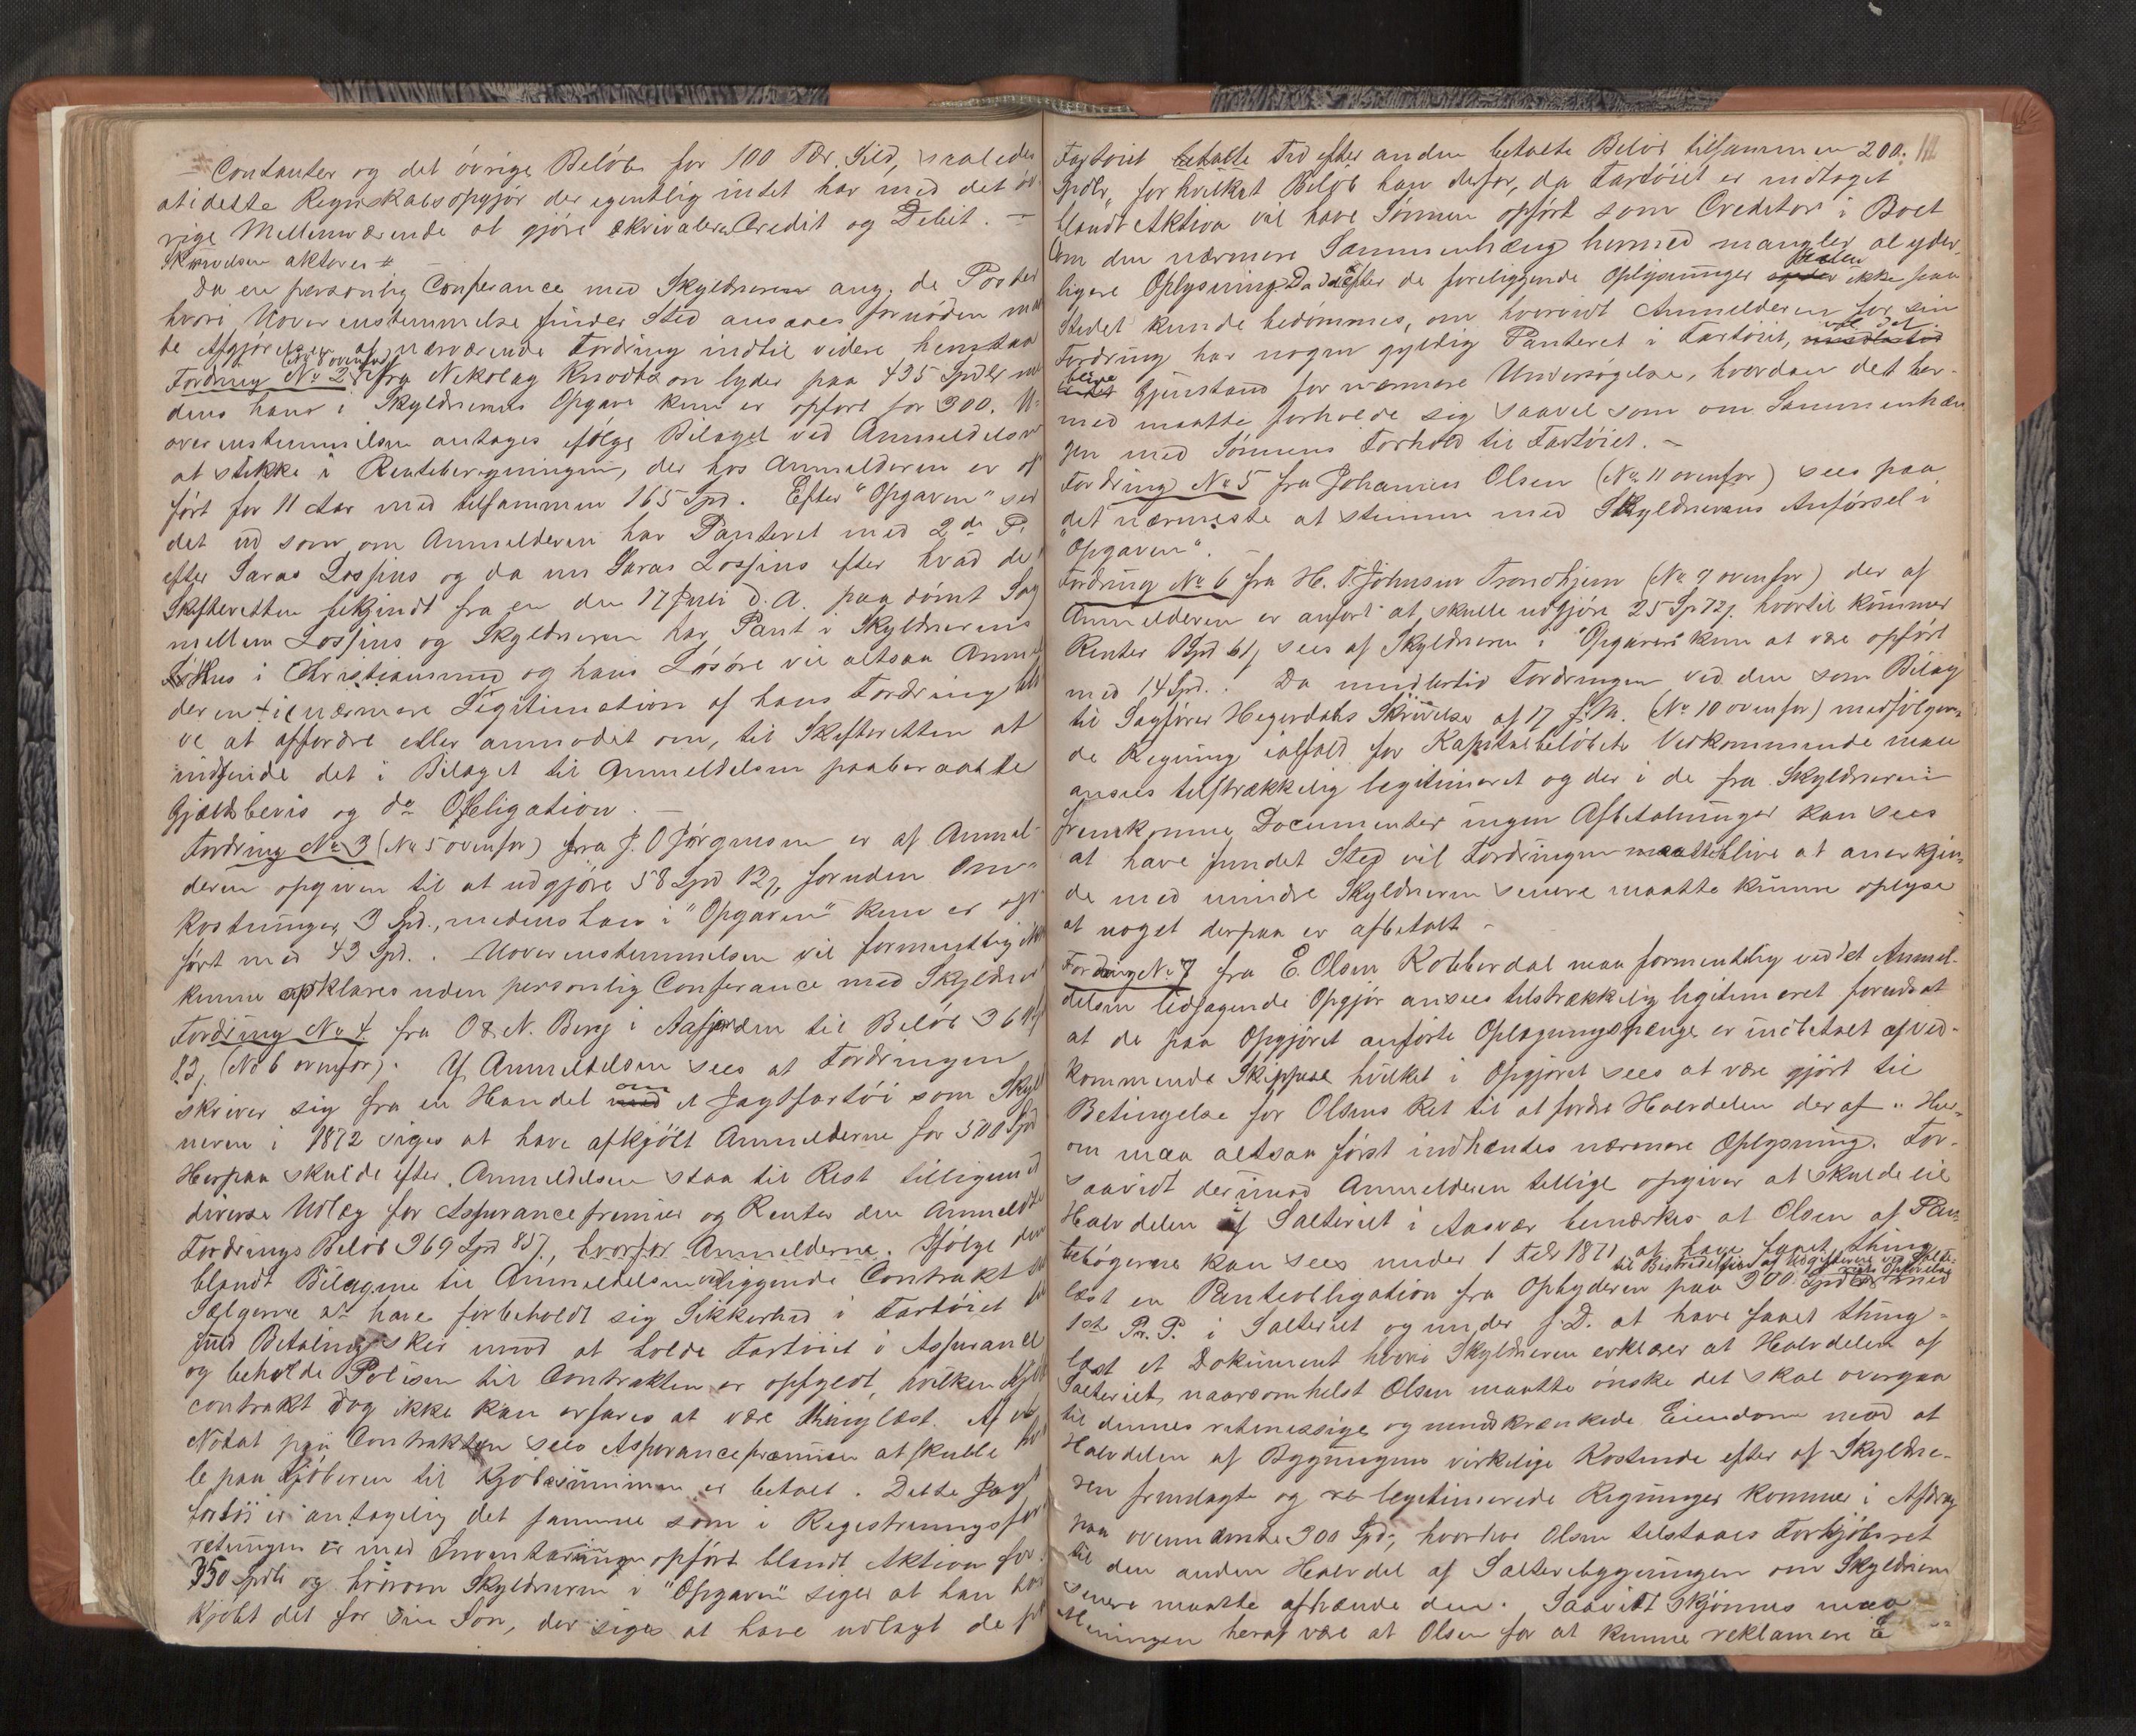 Contanter og det övrige Belöb for 100 Tdr. Sild, saaledes
at dette Regnskabsopgjör der egentlig intet har med det öv
rige Mellemværende at gjöre ækvivalerer Credit og Debit. —
Skrivelsen aktores #
Da en personlig Conferance med Skyldneren ang. de Poster
hvori Uoverenstemmelse finder Sted ansaaes fornöden
de Afgjörelsen af nærværende Fordring indtil videre henstaa
Fordring No 2 (No ovenfor) fra Nikolay Knudtzon lyder paa 495 Spdlr
dens hans i Skyldnerens Opgave kun er opfört for 300. U-
overenstemmelsen antages ifölge Bilaget ved Anmeldelsen
at stikke i Renteberegningen, der hos Anmelderen er op
fört for 11 Aar med tilsammen 165 Spd. Efter "Opgaven" ser
det ud som om Anmelderen har Panteret med 2de Pr.
efter Saras Lossius og da nu Saras Lossius efter hvad der
Skifteretten bekjendt fra en den 17 Juli d. A. paadömt Sag
mellem Lossius og Skyldneren har Pant i Skyldnerens
Hus i Christianssund og hans Lösöre vil altsaa Anmel
deren nærmere Legitimation af hans Fordring bli
ve at affordre eller anmodet om, til Skifteretten at
indsende det i Bilaget til Anmeldelsen paaberaabte
Gjældsbevis og do Obligation. —
Fordring No 3 (No 5 ovenfor) fra J. O Jörgensen er af Anmel-
deren opgiven til at udgjöre 58 Spd 12 s, foruden Om-
kostninger 3 Spd., medens han i "Opgaven" kun er op-
fört med 43 Spd. . Uoverenstemmelsen vil formentlig ikke
kunne opklares uden personlig Conferance med Skyldner
Fordring No 4 fra O & N. Berg i Aafjorden til Belöb 369
83, (No 6 ovenfor). Af Anmeldelsen sees at Fordringen
skriver sig fra en Handel om et Jagtfartöi som Skyld
neren i 1872 siges at have afkjöbt Anmelderne for 500 Spd
Herpaa skulde efter Anmeldelsen staa til Rest tilligemed
diverse Udlæg for Assurancepremier og Renter den anmeldte
Fordrings Belöb 369 Spd 83 s., hvorfor Anmelderne. Ifölge den
blandt Bilagene til Anmeldelsen vedliggende Contrakt
Sælgerne at have forbeholdt sig Sikkerhed i Fartöiet
fuld Betaling sker imod at holde Fartöiet i Assurance
og beholde Polisen til Contrakten er opfyldt, hvilken Kjöbe
contrakt dog ikke kan erfares at være thinglæst. Af et
Notat paa Contrakten sees Assurancepræmien at skulle
le paa Kjöberen til Kjöbesummen er betalt. Dette Jagt
fartöi er antagelig det samme som i Registreringsfor
retningen er med Inventarium opfört blandt Aktiva for
350 Spdlr og hvorom Skyldneren i "Opgaven" siger at han har
kjöbt det for sin Sön, der siges at have udlagt de
Fartöiet betalte Tid efter anden betalte Belöb tilsammen 200
Spdlr, for hvilket Belöb han derfor, da Fartöiet er indtaget
blandt Aktiva vil have Sönnen opfört som Creditor i Boet
Om den nærmere Sammenhæng hermed mangler al yder
ligere Oplysning. Da der efter de foreliggende Oplysninger ikke paa
Stedet kunde bedömmes, om hvorvidt Anmelderen for sin
Fordring har nogen gyldig Panteret i Fartöiet, vil det
blive Gjenstand for nærmere Undersögelse, hvordan det her-
med maatte forholde sig saavel som om Sammenhæn
gen med Sönnens Forhold til Fartöiet. —
Fordring No 5 fra Johannes Olsen (No 11 ovenfor) sees paa
det nærmeste at stemme med Skyldnerens Anförsel i
"Opgaven". —
Fordring No 6 fra H. T. Johnsen Trondhjem (No 9 ovenfor) der af
Anmelderen er anfört at skulle udgjöre 25 Sp 72 s. hvortil kommer
Renter 1 Spd 61 s sees af Skyldneren i "Opgaven" kun at være opfört
med 14 Spd. . Da imidlertid Fordringen ved den som Bilag
til Sagförer Hegerdahls Skrivelse af 17 f. M. (No 10 ovenfor) medfölgen-
de Regning ialfald for Kapitalbelöbets Vedkommende maa
ansees tilstrækkelig legitimeret og der i de fra Skyldneren
fremkomne Documenter ingen Afbetalninger kan sees
at have fundet Sted vil Fordringen maatte blive at anerkjen-
de med mindre Skyldneren senere maatte kunne oplyse
at noget derpaa er afbetalt —
Fordring No 7 fra E. Olsen Kobberdal maa formentlig ved det Anmel-
delsen ledsagende Opgjör ansees tilstrækkelig legitimeret forudsat
at de paa Opgjöret anförte Oplagningspenge er indbetalt af ved-
kommende Skippere hvilket i Opgjöret sees at være gjört til
Betingelse for Olsens Ret til at fordre Halvdelen deraf. Her-
om maa altsaa först indhentes nærmere Oplysning. For-
saavidt derimod Anmelderen tillige opgiver at skulde eie
Halvdelen i Salteriet i Aasvær bemærkes at Olsen af Pan-
tebögerne kan sees under 1 Febr 1871 at have faaet thing
læst en Panteobligation fra Ophyderen paa 300 Spd med
til Bestridelsen af Udgifterne ved Salte-
riets Opförelse
1ste Pr. P. i Salteriet og under s. D. at have faaet thing-
læst et Dokument hvori Skyldneren erklærer at Halvdelen af
Salteriet naarsomhelst Olsen maatte önske det skal overgaa
til dennes retmæssige og uindskrænkede Eiendom mod at
Halvdelen af Bygningens virkelige Kostende efter af Skyldne-
ren fremlagte og legitimerede Regninger kommer i Afdrag
paa ovennævnte 300 Spd, hvorhos Olsen tilstaaes Forkjöbsret
til den anden Halvdel af Salteribygningen om Skyldneren
senere maatte afhænde den. Saavidt skjönnes maa
Meningen heraf være at Olsen for at kunne reklamere